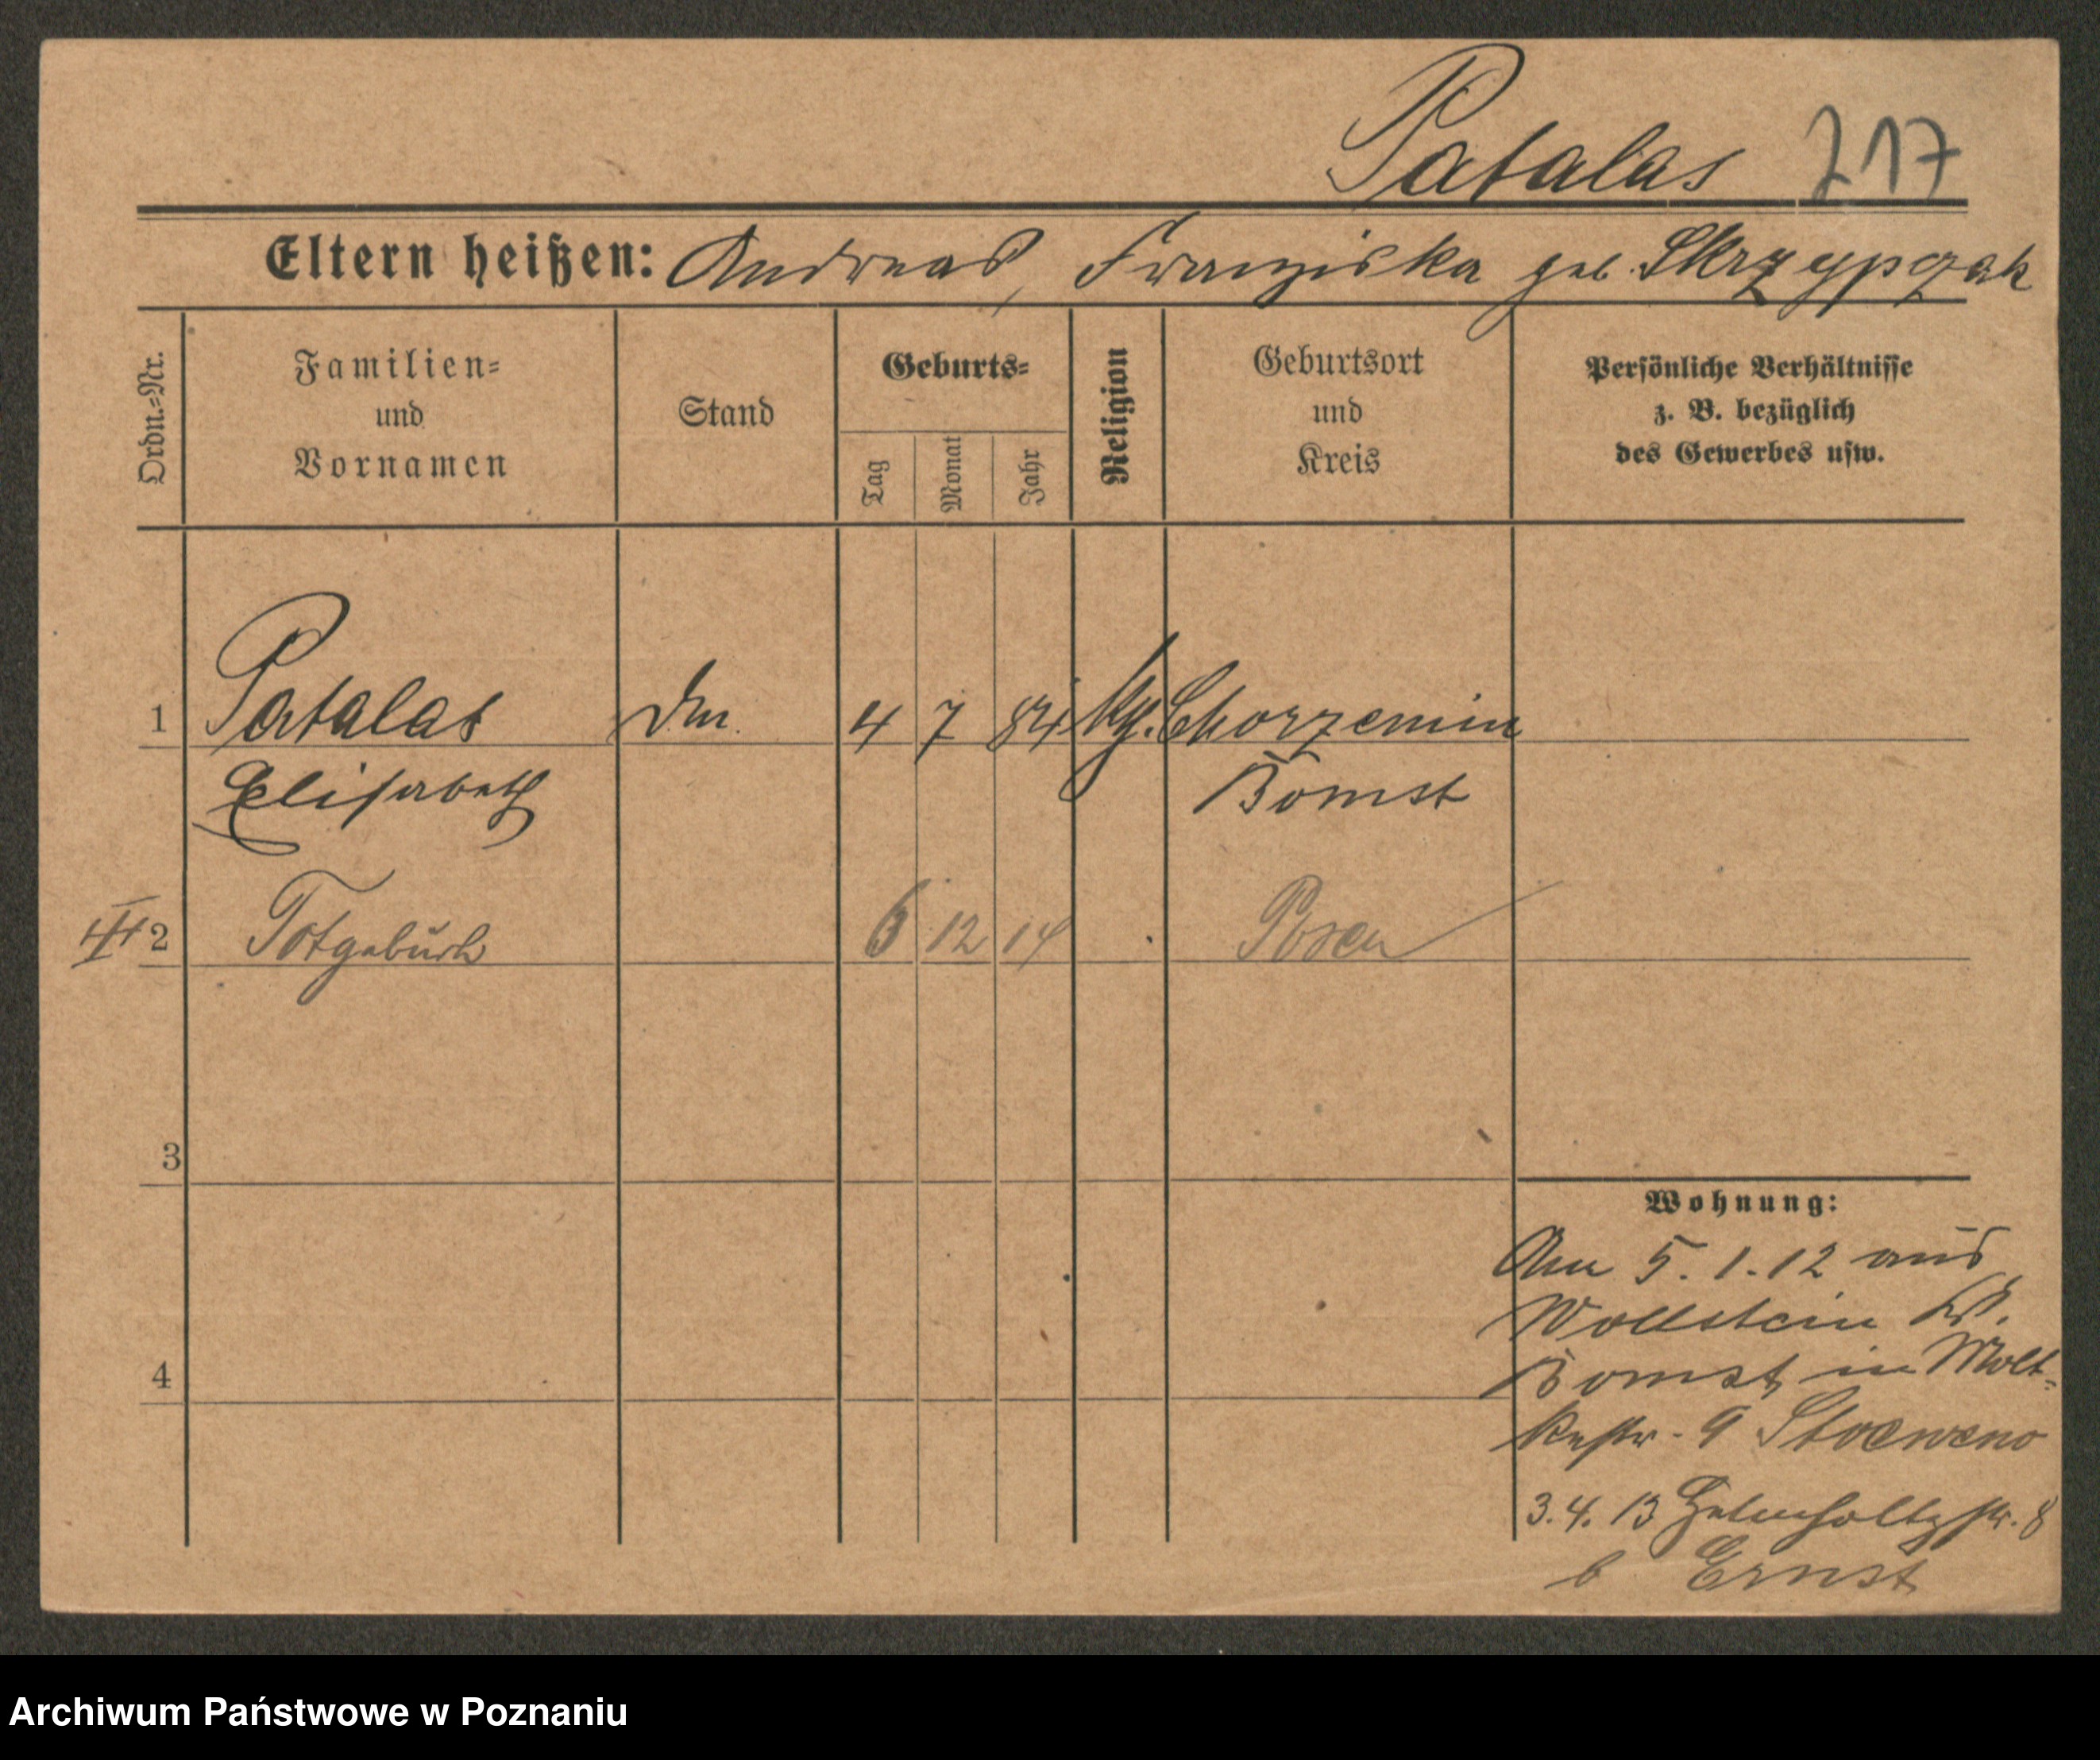 Patalas 217
Eltern heißen: Andreas, Franziska geb. Skrzypczak
Ordn.-Nr.
Familien-
und
Vornamen
Stand
Geburts-
Tag
Monat
Jahr
Religion
Geburtsort
und
Kreis
Persönliche Verhältnisse
z. B. bezüglich
des Gewerbes usw.
1 Patalas 4 7 84 Chorzemin
Elisabeth Bomst
2 Totgeburt 6 12 14 Posen
3
4
Wohnung:
Am 5.1.12 aus
Wollstein Krs.
Bomst in Molt-
kestr. 9
3.4.13 Helmholtzstr. 8
b Ernst
Archiwum Państwowe w Poznaniu